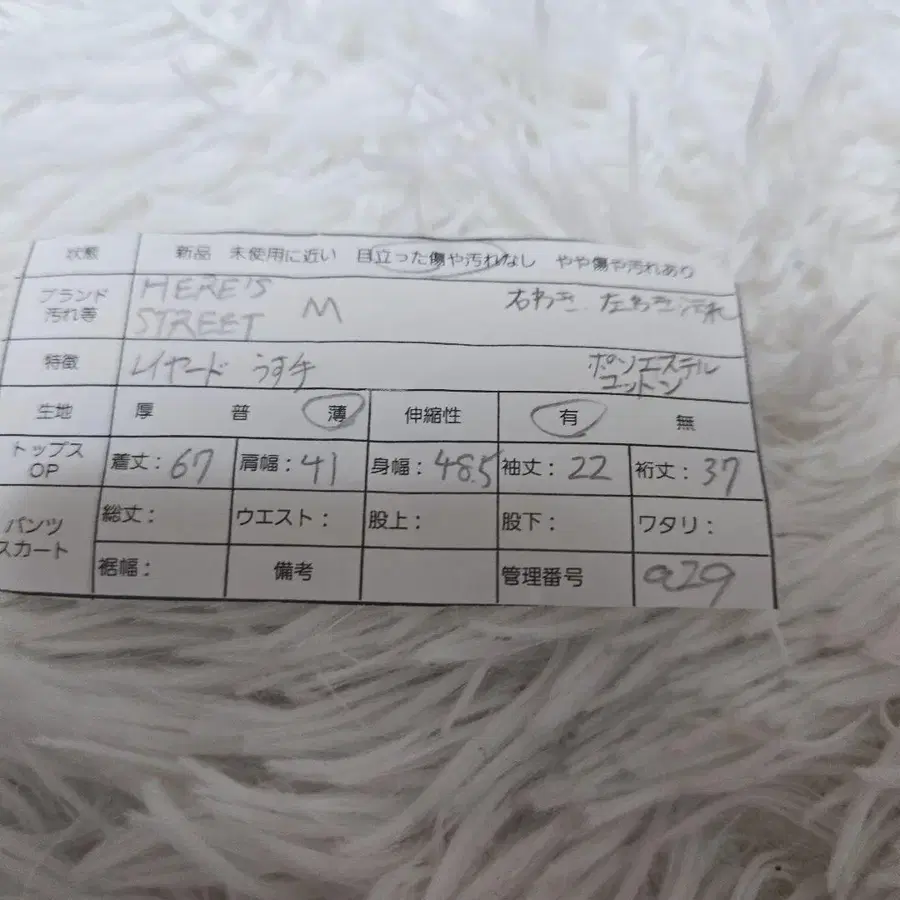 状態 新品 未使用に近い 目立った傷や汚れなし やや傷や汚れあり
ブランド 汚れ等 HERE'S STREET M 右わき、左わき汚れ
特徴 レイヤード うす手 ポリエステル コットン
生地 厚 普 薄 伸縮性 有 無
トップス OP 着丈：67 肩幅：41 身幅：48.5 袖丈：22 裄丈：37
パンツ スカート 総丈： ウエスト： 股上： 股下： ワタリ：
裾幅： 備考 管理番号 a29